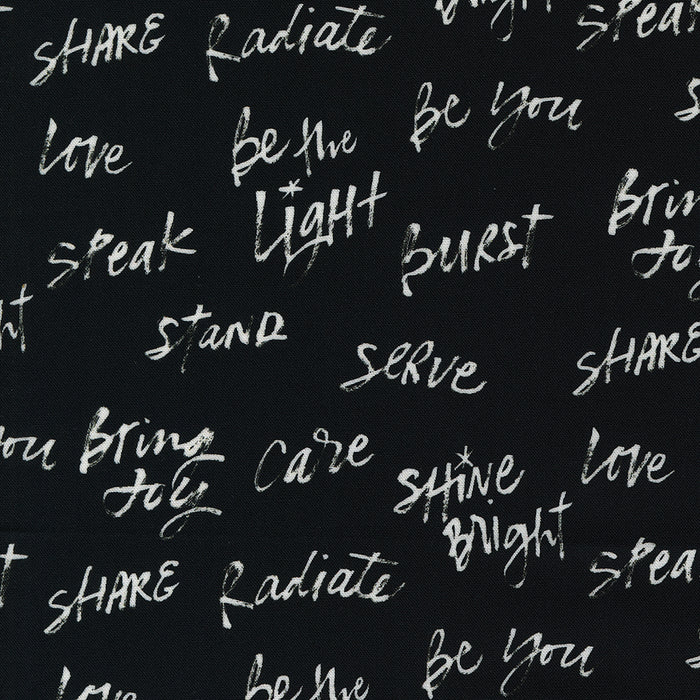 Bright
Speak
SHARE
Radiate
Be You
Love
Be the
Light
Bring
Joy
Speak
BURST
STAND
SHARE
Serve
You
Bring
Joy
Care
Love
SHiNE
Bright
SHARE
Radiate
Speak
Be You
Love
Be the